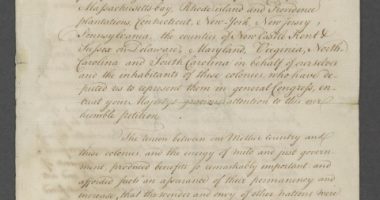 Massachusetts bay, Rhode island and Providence
plantations, Connecticut, New-York, New Jersey,
Pennsylvania, the counties of New Castle Kent &
Sussex on Delaware, Maryland, Virginia, North
Carolina and South Carolina in behalf of ourselves
and the inhabitants of these colonies who have de
puted us to represent them in general Congress, en
treat your Majestys gracious attention to this our
humble petition.
The union between our Mother Country and
these colonies and the energy of mild and just govern
ment produced benefits so remarkably important and
afforded such an assurance of their permanency and
increase, that the wonder and envy of other nations were